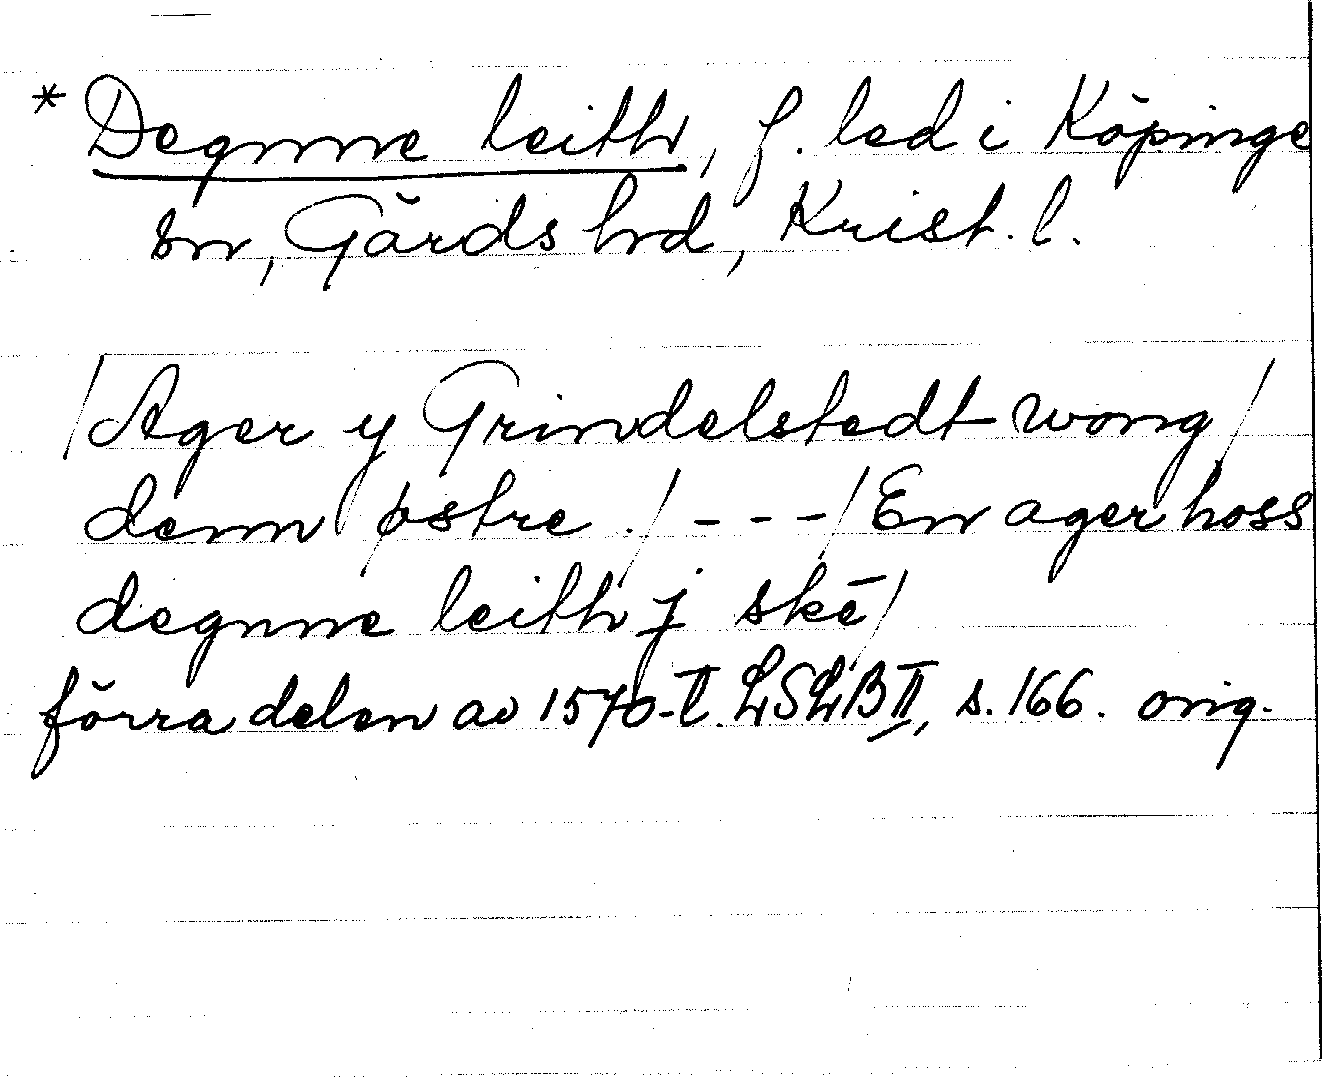 * Degnne leith, f. led i Köpinge
sn, Gärds hd, Krist. l.
/Ager y Grindelstedt wong/
denn østre./---/En ager hoss
degnne leith j skē/
förra delen av 1570-t. LSLB II, s. 166. orig.